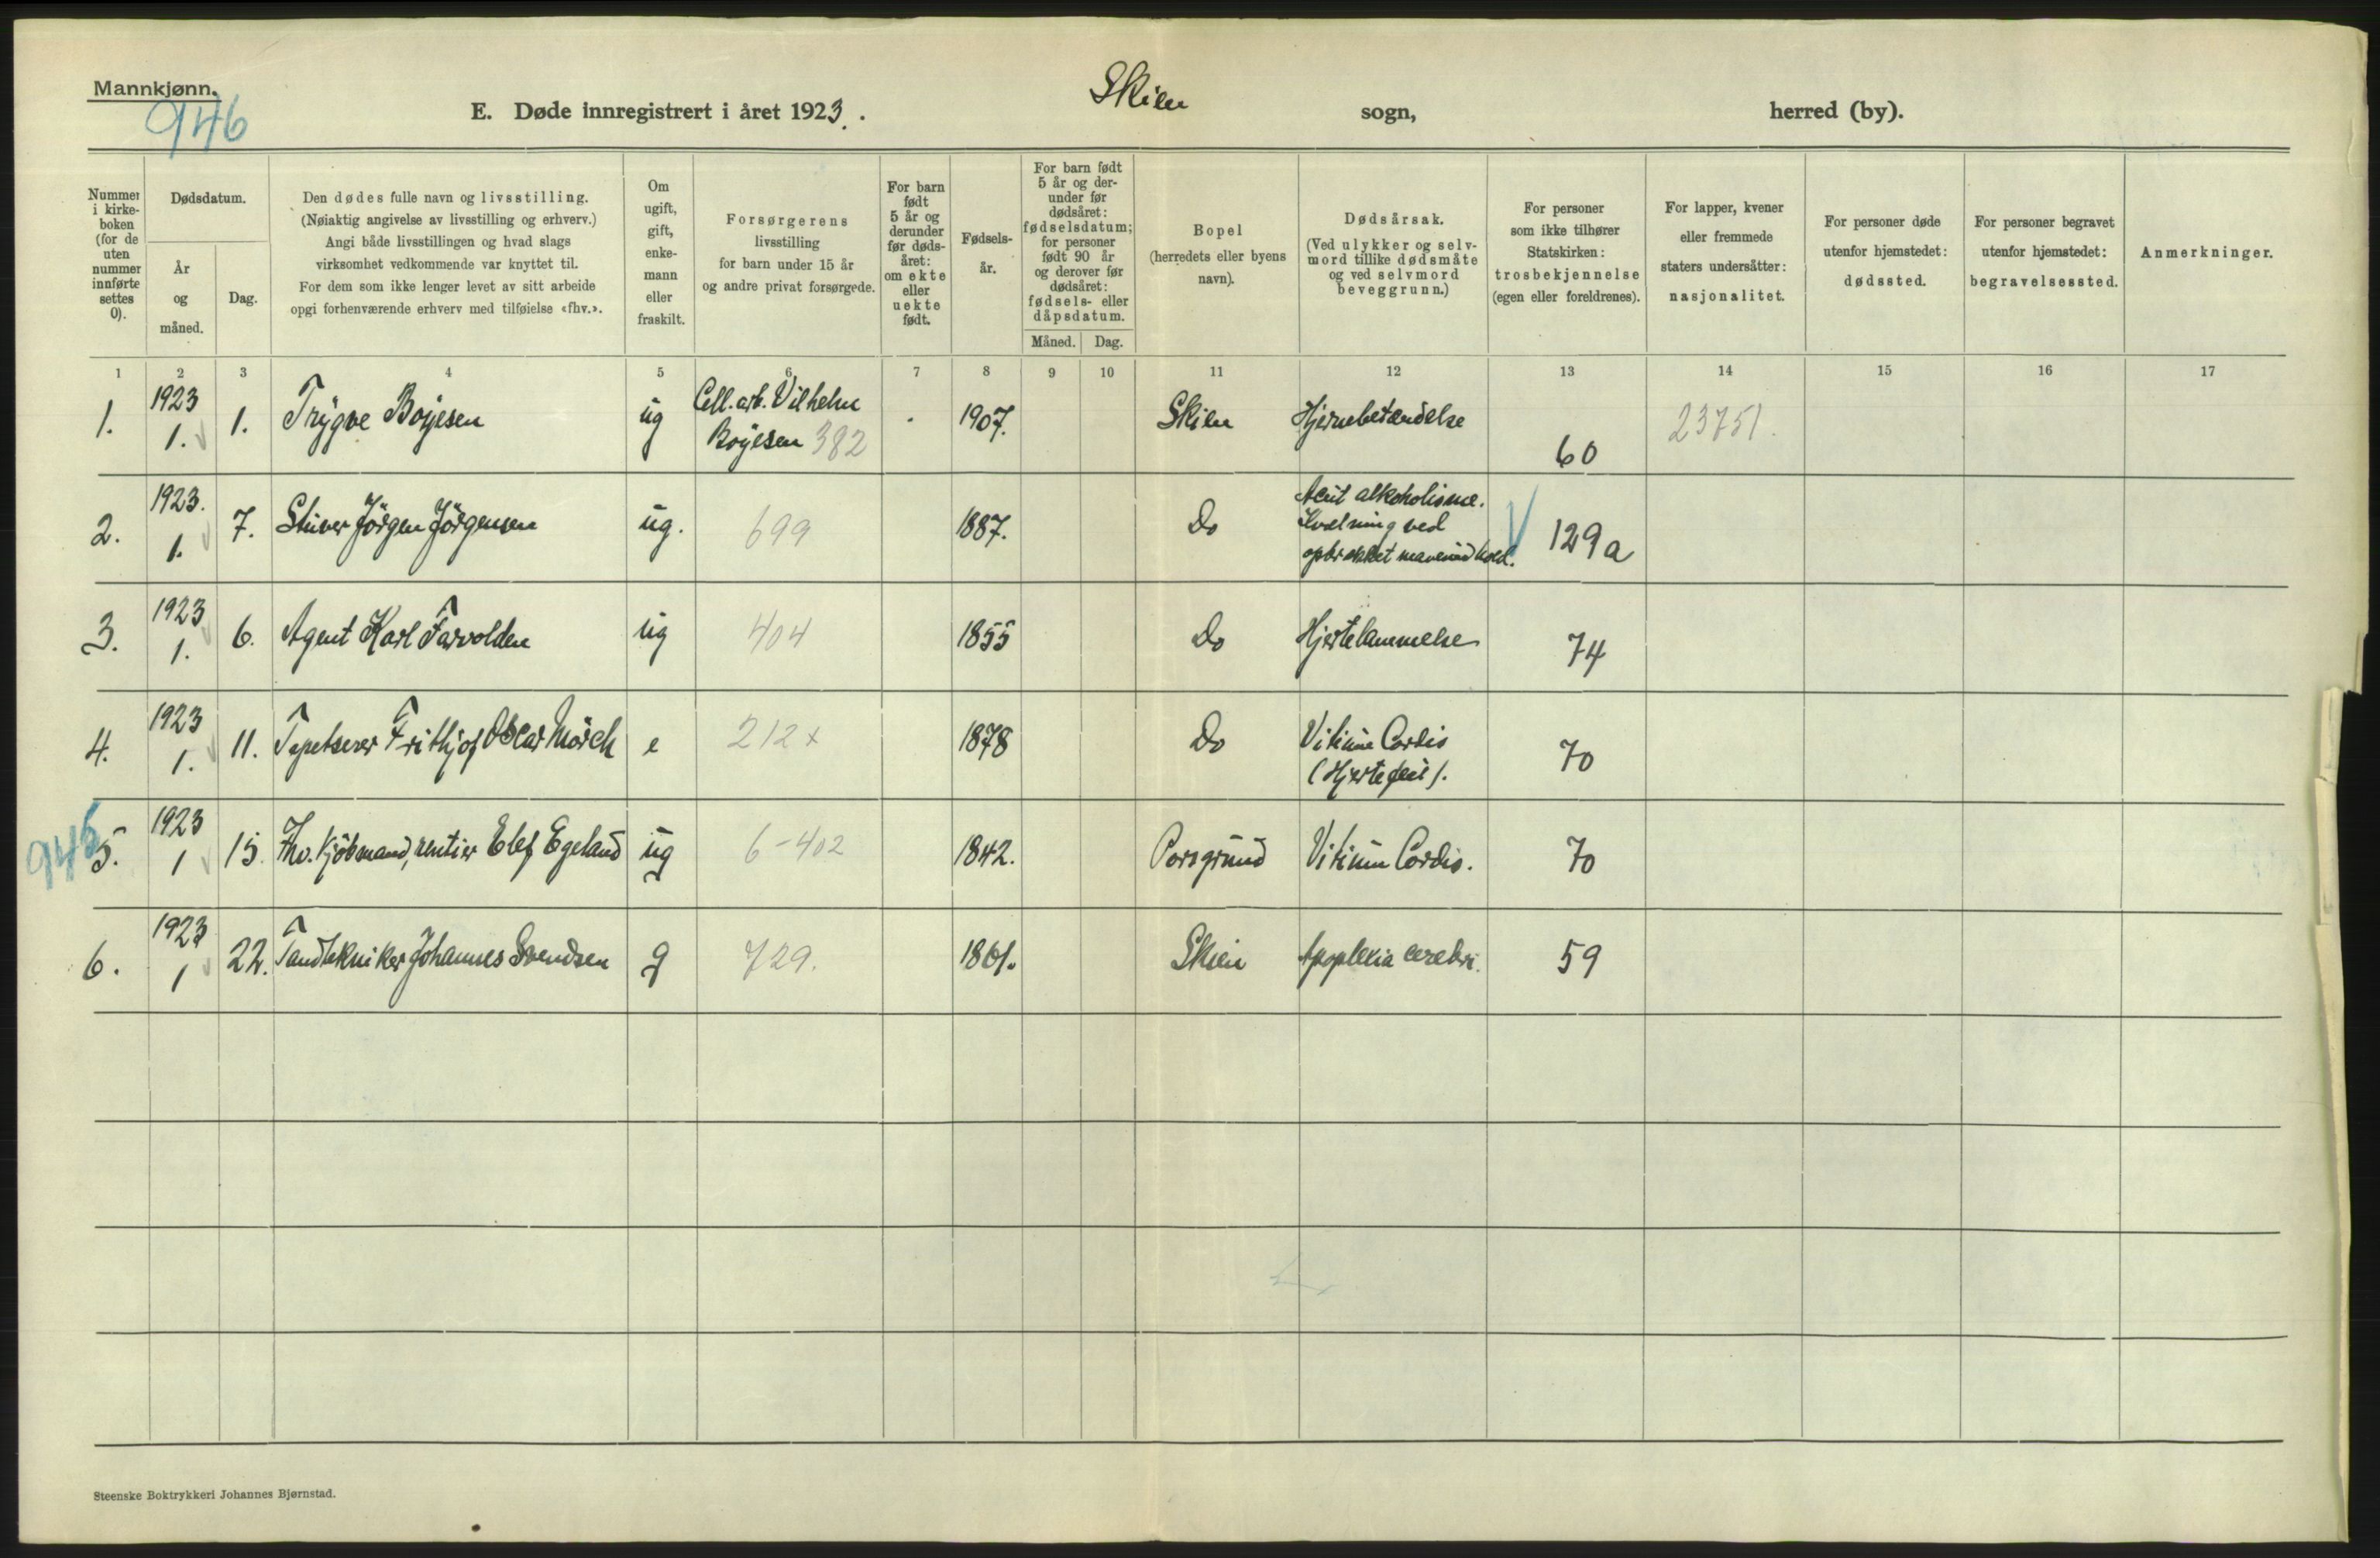 Mannkjønn.
946
E. Døde innregistrert i året 1923.
Skien
sogn,
herred (by).
Nummer
i kirke-
boken
(for de
uten
nummer
innførte
settes
0).
Dødsdatum.
År
og
måned.
Dag.
Den dødes fulle navn og livsstilling.
(Nøiaktig angivelse av livsstilling og erhverv.)
Angi både livsstillingen og hvad slags
virksomhet vedkommende var knyttet til.
For dem som ikke lenger levet av sitt arbeide
opgi forhenværende erhverv med tilføielse «fhv.».
Om
ugift,
gift,
enke-
mann
eller
fraskilt.
Forsørgerens
livsstilling
for barn under 15 år
og andre privat forsørgede.
For barn
født
5 år og
derunder
før døds-
året:
om ekte
eller
uekte
født.
Fødsels-
år.
For barn født
5 år og der-
under før
dødsåret:
fødselsdatum;
for personer
født 90 år
og derover før
dødsåret:
fødsels- eller
dåpsdatum.
Måned.
Dag.
Bopel
(herredets eller byens
navn).
Dødsårsak.
(Ved ulykker og selv-
mord tillike dødsmåte
og ved selvmord
beveggrunn.)
For personer
som ikke tilhører
Statskirken:
trosbekjennelse
(egen eller foreldrenes).
For lapper, kvener
eller fremmede
staters undersåtter:
nasjonalitet.
For personer døde
utenfor hjemstedet:
dødssted.
For personer begravet
utenfor hjemstedet:
begravelsessted.
Anmerkninger.
1 2 3 4 5 6 7 8 9 10 11 12 13 14 15 16 17
1. 1923 1. 1. Trygve Boyesen ug Cell. arb. Vilhelm
Boyesen 382 1907. Skien Hjernebetændelse 60 23751.
2. 1923. 1. 7. Jörgen Jörgensen ug. 699 1887. Do Acut alkoholisme.
Kvælning ved
opbrækket maveindhold. 129a
3. 1923 1. 6. Agent Karl Farvolden ug 404 1855 Do Hjertelammelse 74
4. 1923 1. 11. Tapetserer Frithjof Oscar Mörch e 212x 1878 Do Vitium Cordis
(Hjertefeil). 70
945
5. 1923 1 15. Fhv. Kjöbmand, rentier Elef Egeland ug 6-402 1842. Porsgrund Vitium Cordis. 70
6. 1923 1 22. Tandtekniker Johannes Svendsen g 729. 1861. Skien Apoplexia cerebri. 59
Steenske Boktrykkeri Johannes Bjørnstad.